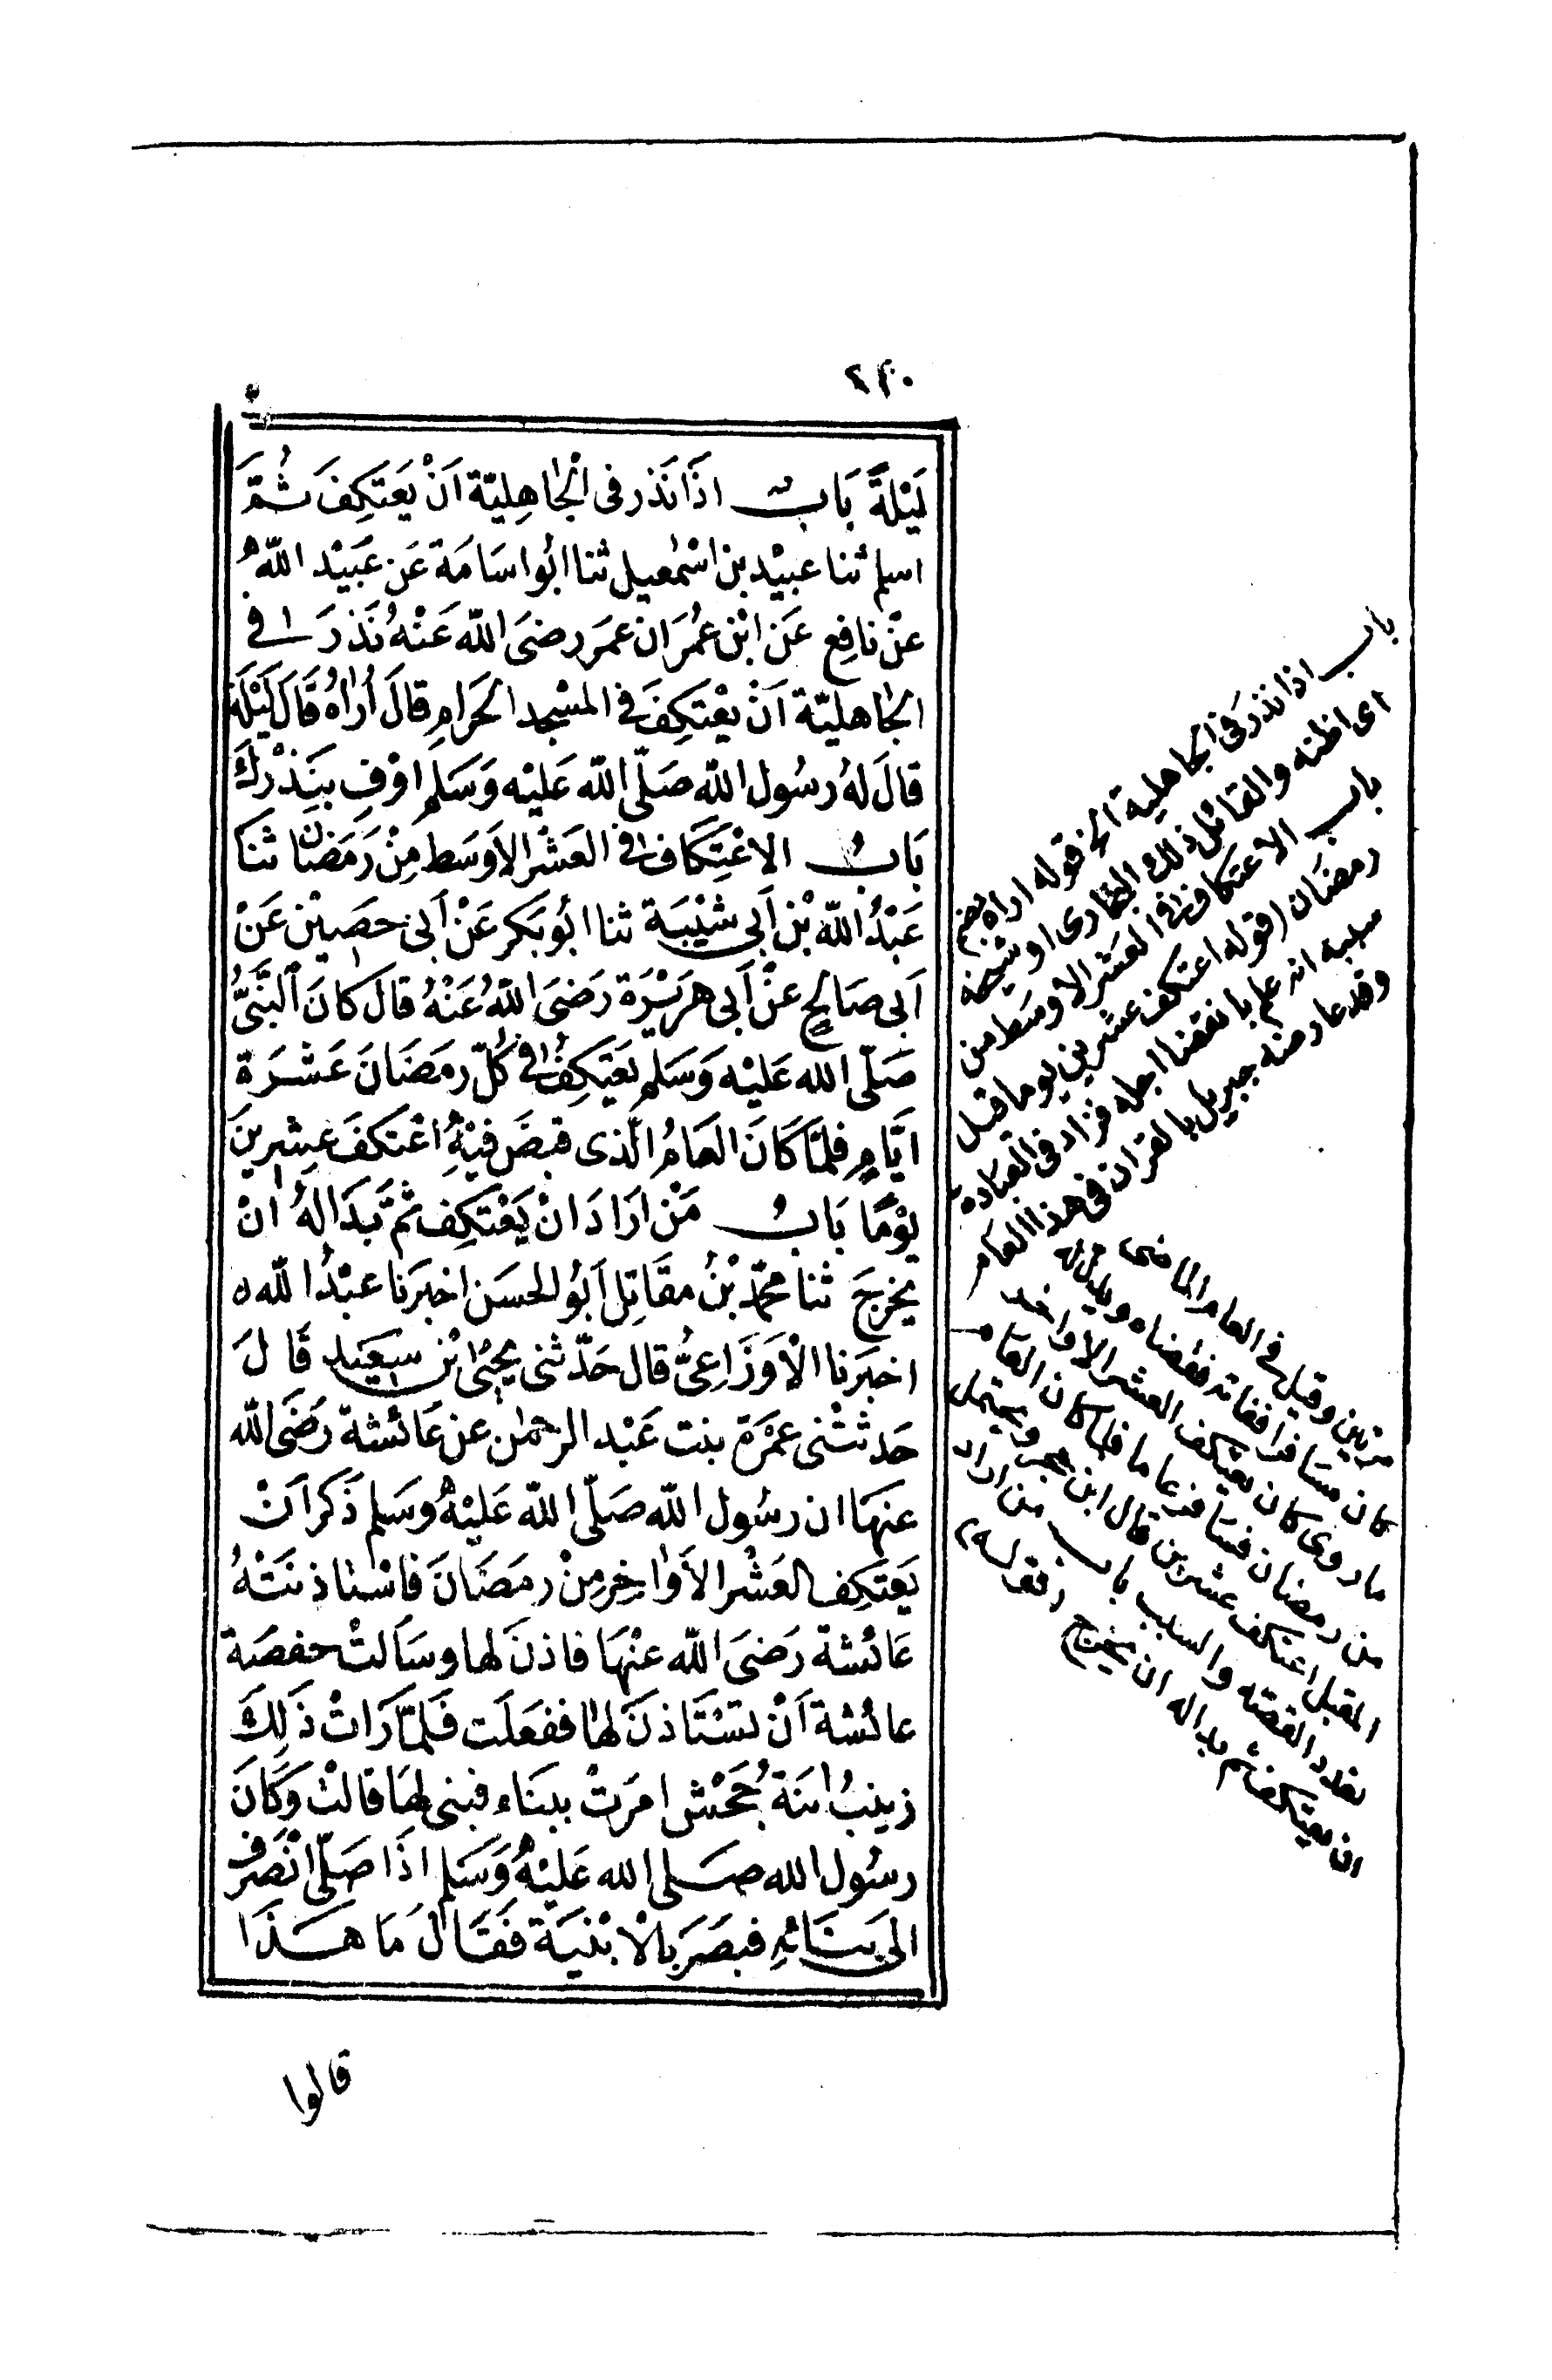 ٢٢٠
لَيْلَةً بَابٌ اذَا نَذَر فى الْجَاهِلِيّة اَنْ يَعَتَكِفَ ثُمَّ
اسلم ثنا عبيْد بن اسْمٰعيل ثنا ابُو اسَامَة عَن عُبَيْد اللّه
عنْ نافِع عَن ابْن عُمَر ان عمَر رضىَ اللّه عَنْهُ نَذرَ فى
الجَاهليّة اَنْ يعْتكِفَ فى المسْجد الحَرامِ قالَ اُراهُ قَالَ لَيْلَة
قالَ لهُ رسُول اللّه صَلّى اللّه عَليْه وَسَلم اوْفِ بنَذْرِكَ
بَابُ الاعْتِكَاف فى العَشْر الاَوسَط مِنْ رَمَضَان ثنَا
عَبْدُ اللّه بْن اَبى شَيْبَة ثنا ابُو بَكر عَنْ اَبى حصَيْن عَنْ
اَبى صَالحٍ عنْ اَبى هرَيْرَة رَضىَ اللّهُ عَنْهُ قالَ كانَ النَّبىُّ
صَلّى الله عَليْه وَسَلم يَعَتكِفُ فى كُلّ رمَضَانَ عَشْرَة
ايّامٍ فلمّا كَانَ العَامُ الّذى قبضَ فيْهِ اعْتكفَ عِشرينَ
يوْمًا بَابُ مَنْ ارَادَ انْ يَعْتكِف ثمَّ بَدَا لهُ انْ
يخرجَ ثنا محمّد بْنُ مقَاتِل اَبُو الحسَن اخبَرنا عبْدُ اللّه
اخبَرنا الْاَوزَاعِىُّ قال حَدّثنى يحيَى ابْن سعَيد قَالَ
حَدثتْنى عمْرَة بنت عَبْد الرحمٰن عن عَائشة رَضىَ اللّه
عنهَا ان رسُول اللّه صَلّى اللّه عَليْهِ وسَلم ذَكرَ اَنْ
يَعَتكِف العَشْر الاَوٰاخِر مِنْ رمَضَانَ فَاسْتاذنَتْهُ
عَائشة رَضىَ اللّه عنْهَا فاذنَ لها وسَاَلتْ حفصَة
عائشة اَنْ تسْتَاذنَ لهَا ففعَلَت فَلمّا رَاتْ ذَلِكَ
زينبُ ابنَة جَحْش امرَتْ ببنَاء فبنى لهَا قالتْ وَكَانَ
رسُول الله صَلى الله عَليْهِ وَسَلم اذَا صَلّى انْصَرف
الى بنَائِهِ فبصَر بالْابْنيَة فَقَالَ مَا هَذَا
قالوا
باب اذا نذر فى الجاهلية الخ قوله اراه بضم
اى اظنه والقائل ذلك البخارى او شيخه
باب الاعتكاف فى العشر الاوسط من
رمضان (قوله اعتكف عشرين يوما قيل
سببه انه علم بانقضا اجله فزاد فى العباده
وقد عارضه جبريل بالقران فى هذا العام
مرتين وقيل فى العام الماضى
كان مسافرا ففاته فقضاه ويدل له
ما روى كان يعتكف العشر الاواخر
من رمضان فسافر عاما فلما كان العام
المقبل اعتكف عشرين قال ابن حجر ويحتمل
تعدد القصة والسبب باب من اراد
ان يعتكف ثم بدا له ان يخرج